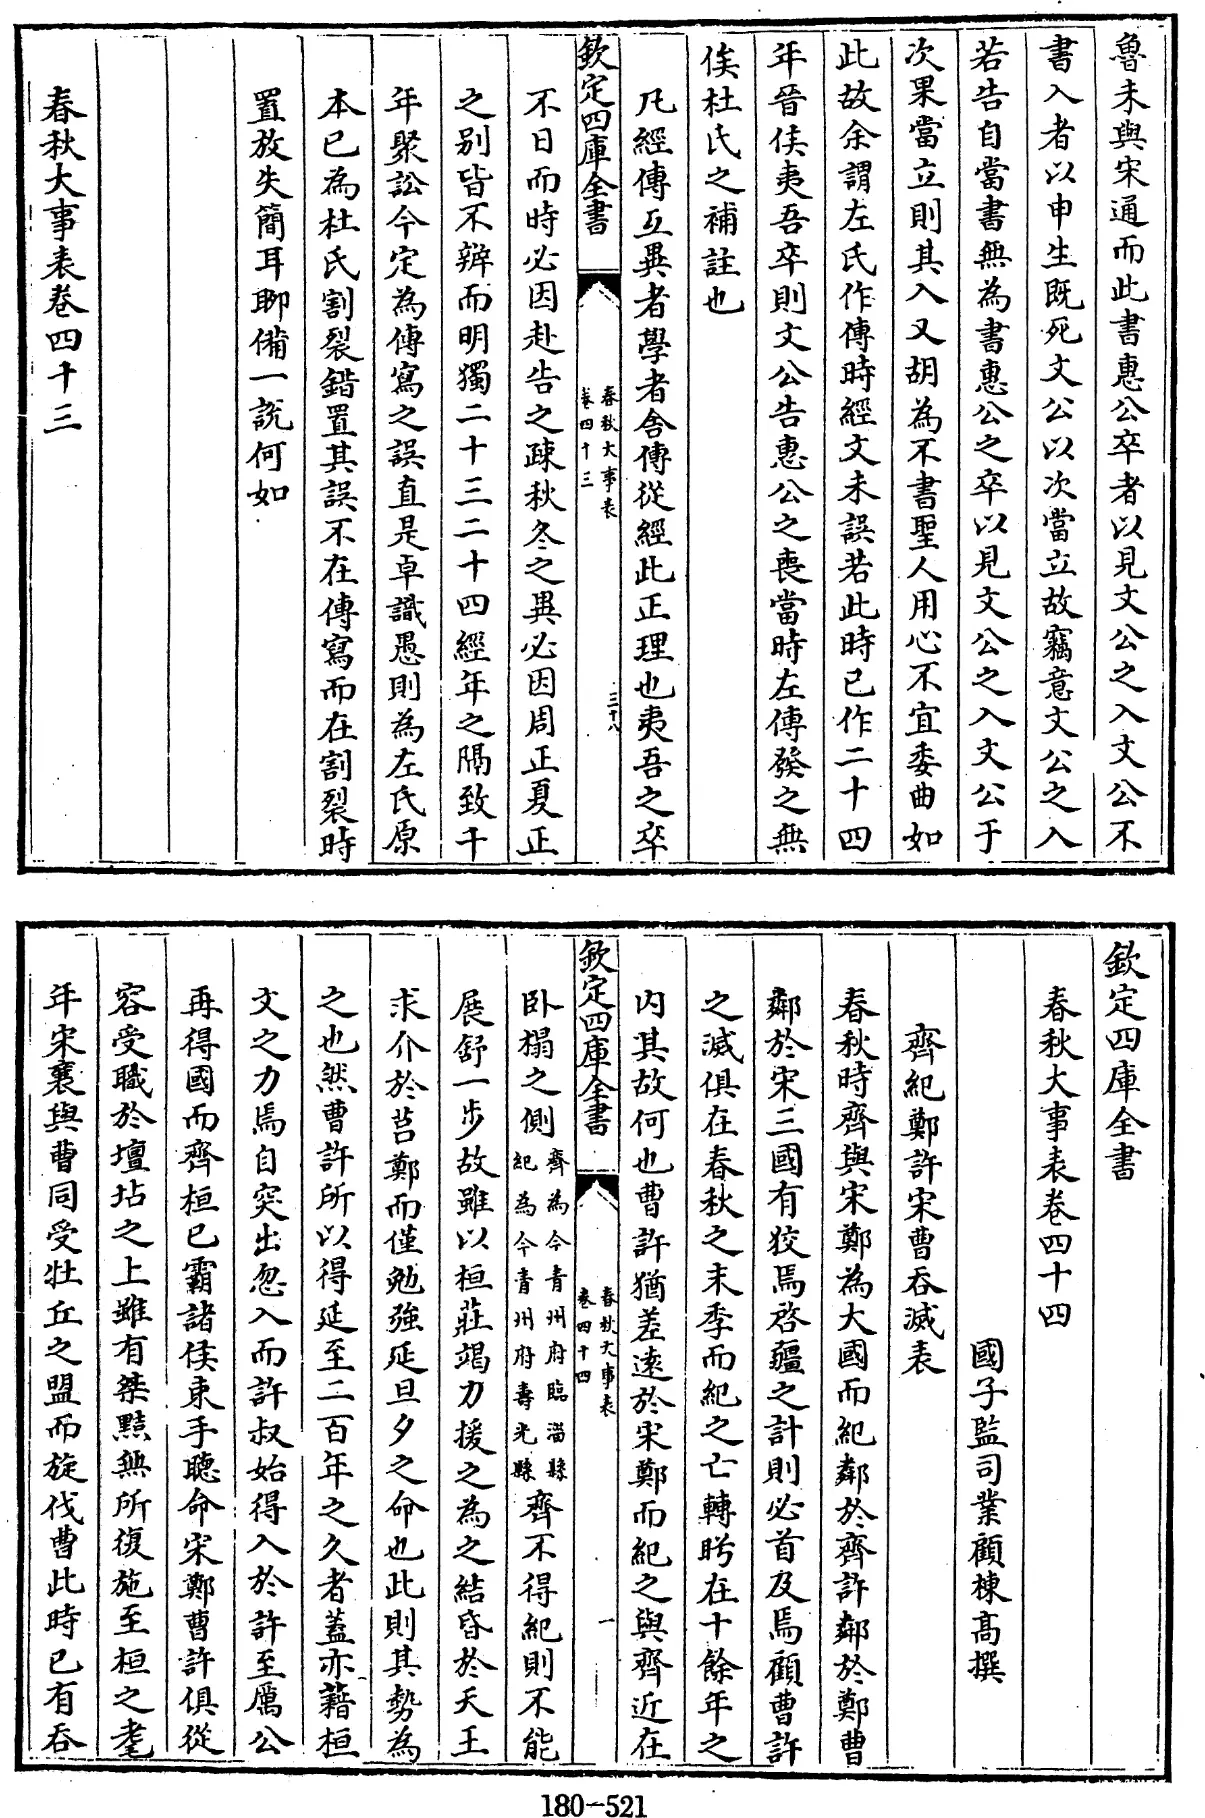 魯未與宋通而此書惠公卒者以見文公之入文公不
書入者以申生既死文公以次當立故竊意文公之入
若告自當書無為書惠公之卒以見文公之入文公于
次果當立則其入又胡為不書聖人用心不宜委曲如
此故余謂左氏作傳時經文未誤若此時已作二十四
年晉侯夷吾卒則文公告惠公之喪當時左傳發之無
俟杜氏之補註也
凡經傳互異者學者舍傳從經此正理也夷吾之卒
欽定四庫全書
春秋大事表
卷四十三
三十八
不日而時必因赴告之疎秋冬之異必因周正夏正
之别皆不辨而明獨二十三二十四經年之隔致千
年聚訟今定為傳寫之誤直是卓識愚則為左氏原
本已為杜氏割裂錯置其誤不在傳寫而在割裂時
置放失簡耳聊備一說何如
春秋大事表卷四十三
欽定四庫全書
春秋大事表卷四十四
國子監司業顧棟高撰
齊紀鄭許宋曹吞滅表
春秋時齊與宋鄭為大國而紀鄰於齊許鄰於鄭曹
鄰於宋三國有狡焉啓疆之計則必首及焉顧曹許
之滅俱在春秋之末季而紀之亡轉盻在十餘年之
内其故何也曹許猶差遠於宋鄭而紀之與齊近在
欽定四庫全書
春秋大事表
卷四十四
一
卧榻之側齊為今青州府臨淄縣紀為今青州府壽光縣齊不得紀則不能
展舒一步故雖以桓莊竭力援之為之結昏於天王
求介於莒鄭而僅勉強延旦夕之命也此則其勢為
之也然曹許所以得延至二百年之久者蓋亦藉桓
文之力焉自突出忽入而許叔始得入於許至厲公
再得國而齊桓已霸諸侯束手聽命宋鄭曹許俱從
容受職於壇坫之上雖有桀黠無所復施至桓之耄
年宋襄與曹同受牡丘之盟而旋伐曹此時已有吞
180-521